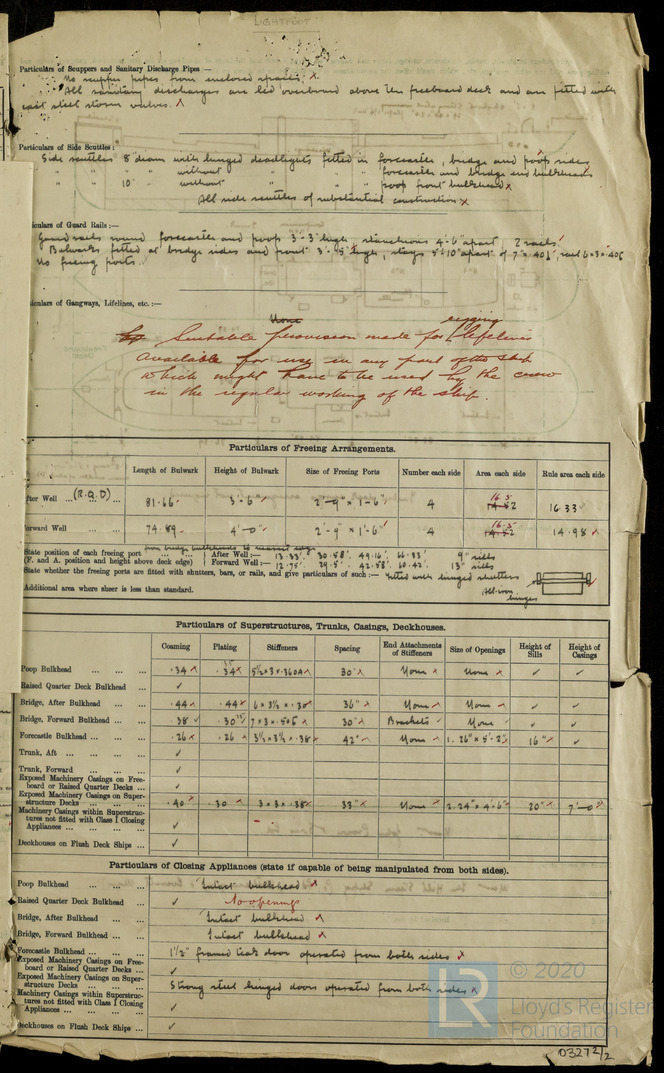 LIGHTFOOT
Particulars of Scuppers and Sanitary Discharge Pipes —
No scupper pipes from enclosed spaces. x
All sanitary discharges are led overboard above the freeboard deck and are fitted with
cast steel storm valves. x
Particulars of Side Scuttles :
Side scuttles 8" diam with hinged deadlights fitted in forecastle, bridge and poop sides
" " " " without " " " forecastle and bridge end bulkheads
" " 10" " without " " " poop front bulkhead x
All side scuttles of substantial construction x
iculars of Guard Rails :—
Guard rails round forecastle and poop 3'-3" high stanchions 4'-6" apart, 2 rails.
Bulwarks fitted at bridge sides and front 3'-5" high, stays 5'-10" apart of 7" x .40
No freeing ports.
iculars of Gangways, Lifelines, etc. :—
None
Suitable provision made for rigging lifelines
available for use in any part of the ship
which might have to be used by the crew
in the regular working of the ship.
Particulars of Freeing Arrangements.
Length of Bulwark Height of Bulwark Size of Freeing Ports Number each side Area each side Rule area each side
fter Well ... (R.Q.D) ... 81.66 3'-6" 2'-9" x 1'-6" 4 16.5 16.33
orward Well ... 74.89 4'-0" 2'-9" x 1'-6" 4 16.5 14.98
from bridge bulkheads to nearest edge
State position of each freeing port ... After Well :— 13.33' 30.58' 49.16' 66.83' 9" sills
(F. and A. position and height above deck edge) Forward Well :— 12.75' 29.5' 42.58' 60.42' 13" sills
State whether the freeing ports are fitted with shutters, bars, or rails, and give particulars of such :— fitted with hinged shutters
All-iron hinges
Additional area where sheer is less than standard.
Particulars of Superstructures, Trunks, Casings, Deckhouses.
Coaming Plating Stiffeners Spacing End Attachments of Stiffeners Size of Openings Height of Sills Height of Casings
Poop Bulkhead ... ... ... .34 .34 5½ x 3 x .36 30" None None ✓ ✓
Raised Quarter Deck Bulkhead ... ✓
Bridge, After Bulkhead ... ... .44 .44 6 x 3½ x .38 36" None None ✓ ✓
Bridge, Forward Bulkhead ... ... .38 .30 7 x 3 x .505 30" Brackets None ✓ ✓
Forecastle Bulkhead ... ... ... .26 .26 3½ x 3½ x .38 42" None 1. 26" x 5'-2" 16" ✓
Trunk, Aft ... ... ... ✓
Trunk, Forward ... ... ...
Exposed Machinery Casings on Free-
board or Raised Quarter Decks ... ✓
Exposed Machinery Casings on Super-
structure Decks ... ... .40 .30 3 x 3 x .38 33" None 2. 24" x 4'-6" 20" 7'-0"
Machinery Casings within Superstruc-
tures not fitted with Class I Closing
Appliances ... ... ... ✓
Deckhouses on Flush Deck Ships ... ✓
Particulars of Closing Appliances (state if capable of being manipulated from both sides).
Poop Bulkhead ... ... ... Intact bulkhead x
Raised Quarter Deck Bulkhead ... ✓ No openings
Bridge, After Bulkhead ... ... Intact bulkhead x
Bridge, Forward Bulkhead ... ... Intact bulkhead x
Forecastle Bulkhead ... ... ... 1½" framed teak door operated from both sides x
Exposed Machinery Casings on Free-
board or Raised Quarter Decks ... ✓
Exposed Machinery Casings on Super-
structure Decks ... ... Strong steel hinged doors operated from both sides x
Machinery Casings within Superstruc-
tures not fitted with Class I Closing
Appliances ... ... ... ✓
Deckhouses on Flush Deck Ships ... ✓
© 2020
LR
Lloyd's Register
Foundation
03272/2